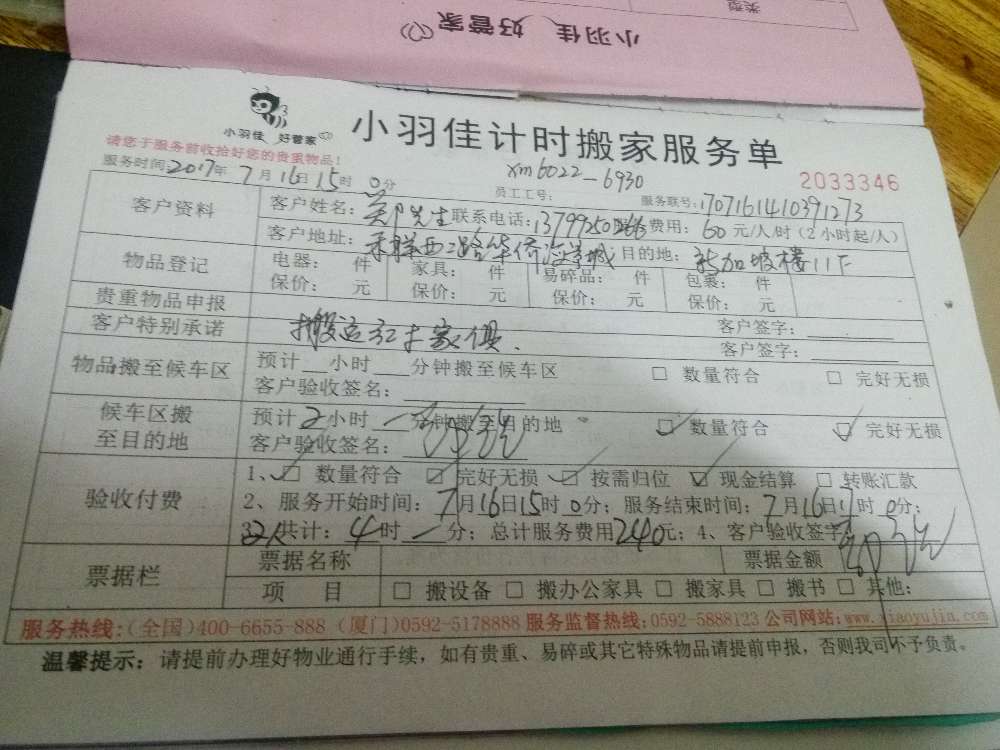 类型
小羽佳 好管家
小羽佳 好管家
小羽佳计时搬家服务单
请您于服务前收拾好您的贵重物品!
服务时间:2017年 7月16日15时 0分
员工工号: xm6022-6930
2033346
服务联号:1707161410391273
客户资料
客户姓名: 先生 联系电话: 费用: 60 元/人/时(2小时起/人)
客户地址: 目的地: 新加坡楼11F
物品登记
电器: 件 家具: 件 易碎品: 件 包裹: 件
保价: 元 保价: 元 保价: 元 保价: 元
贵重物品申报
客户签字:
客户特别承诺
搬运红木家俱.
客户签字:
物品搬至候车区
预计 小时 分钟搬至候车区
□ 数量符合 □ 完好无损
客户验收签名:
候车区搬至目的地
预计2小时 一 分钟搬至目的地
☑ 数量符合 ☑ 完好无损
客户验收签名:
验收付费
1、☑ 数量符合 ☑ 完好无损 ☑ 按需归位 ☑ 现金结算 □ 转账汇款
2、服务开始时间:7月16日15时 0分;服务结束时间:7月16日17时 0分;
2人共计:4时 一 分;总计服务费用240元;4、客户验收签字
票据栏
票据名称 票据金额
项 目 □ 搬设备 □ 搬办公家具 □ 搬家具 □ 搬书 □ 其他:
服务热线:(全国)400-6655-888 (厦门)0592-5178888 服务监督热线:0592-5888123 公司网站:www.xiaoyujia.com
温馨提示:请提前办理好物业通行手续,如有贵重、易碎或其它特殊物品请提前申报,否则我司不予负责。